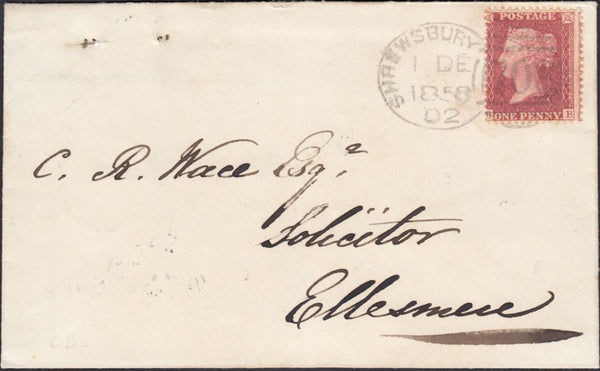 SHREWSBURY
1 DE
1858
D2
POSTAGE
S ONE PENNY E
C. R. Wace Esqr.
Solicitor
Ellesmere
CBJ